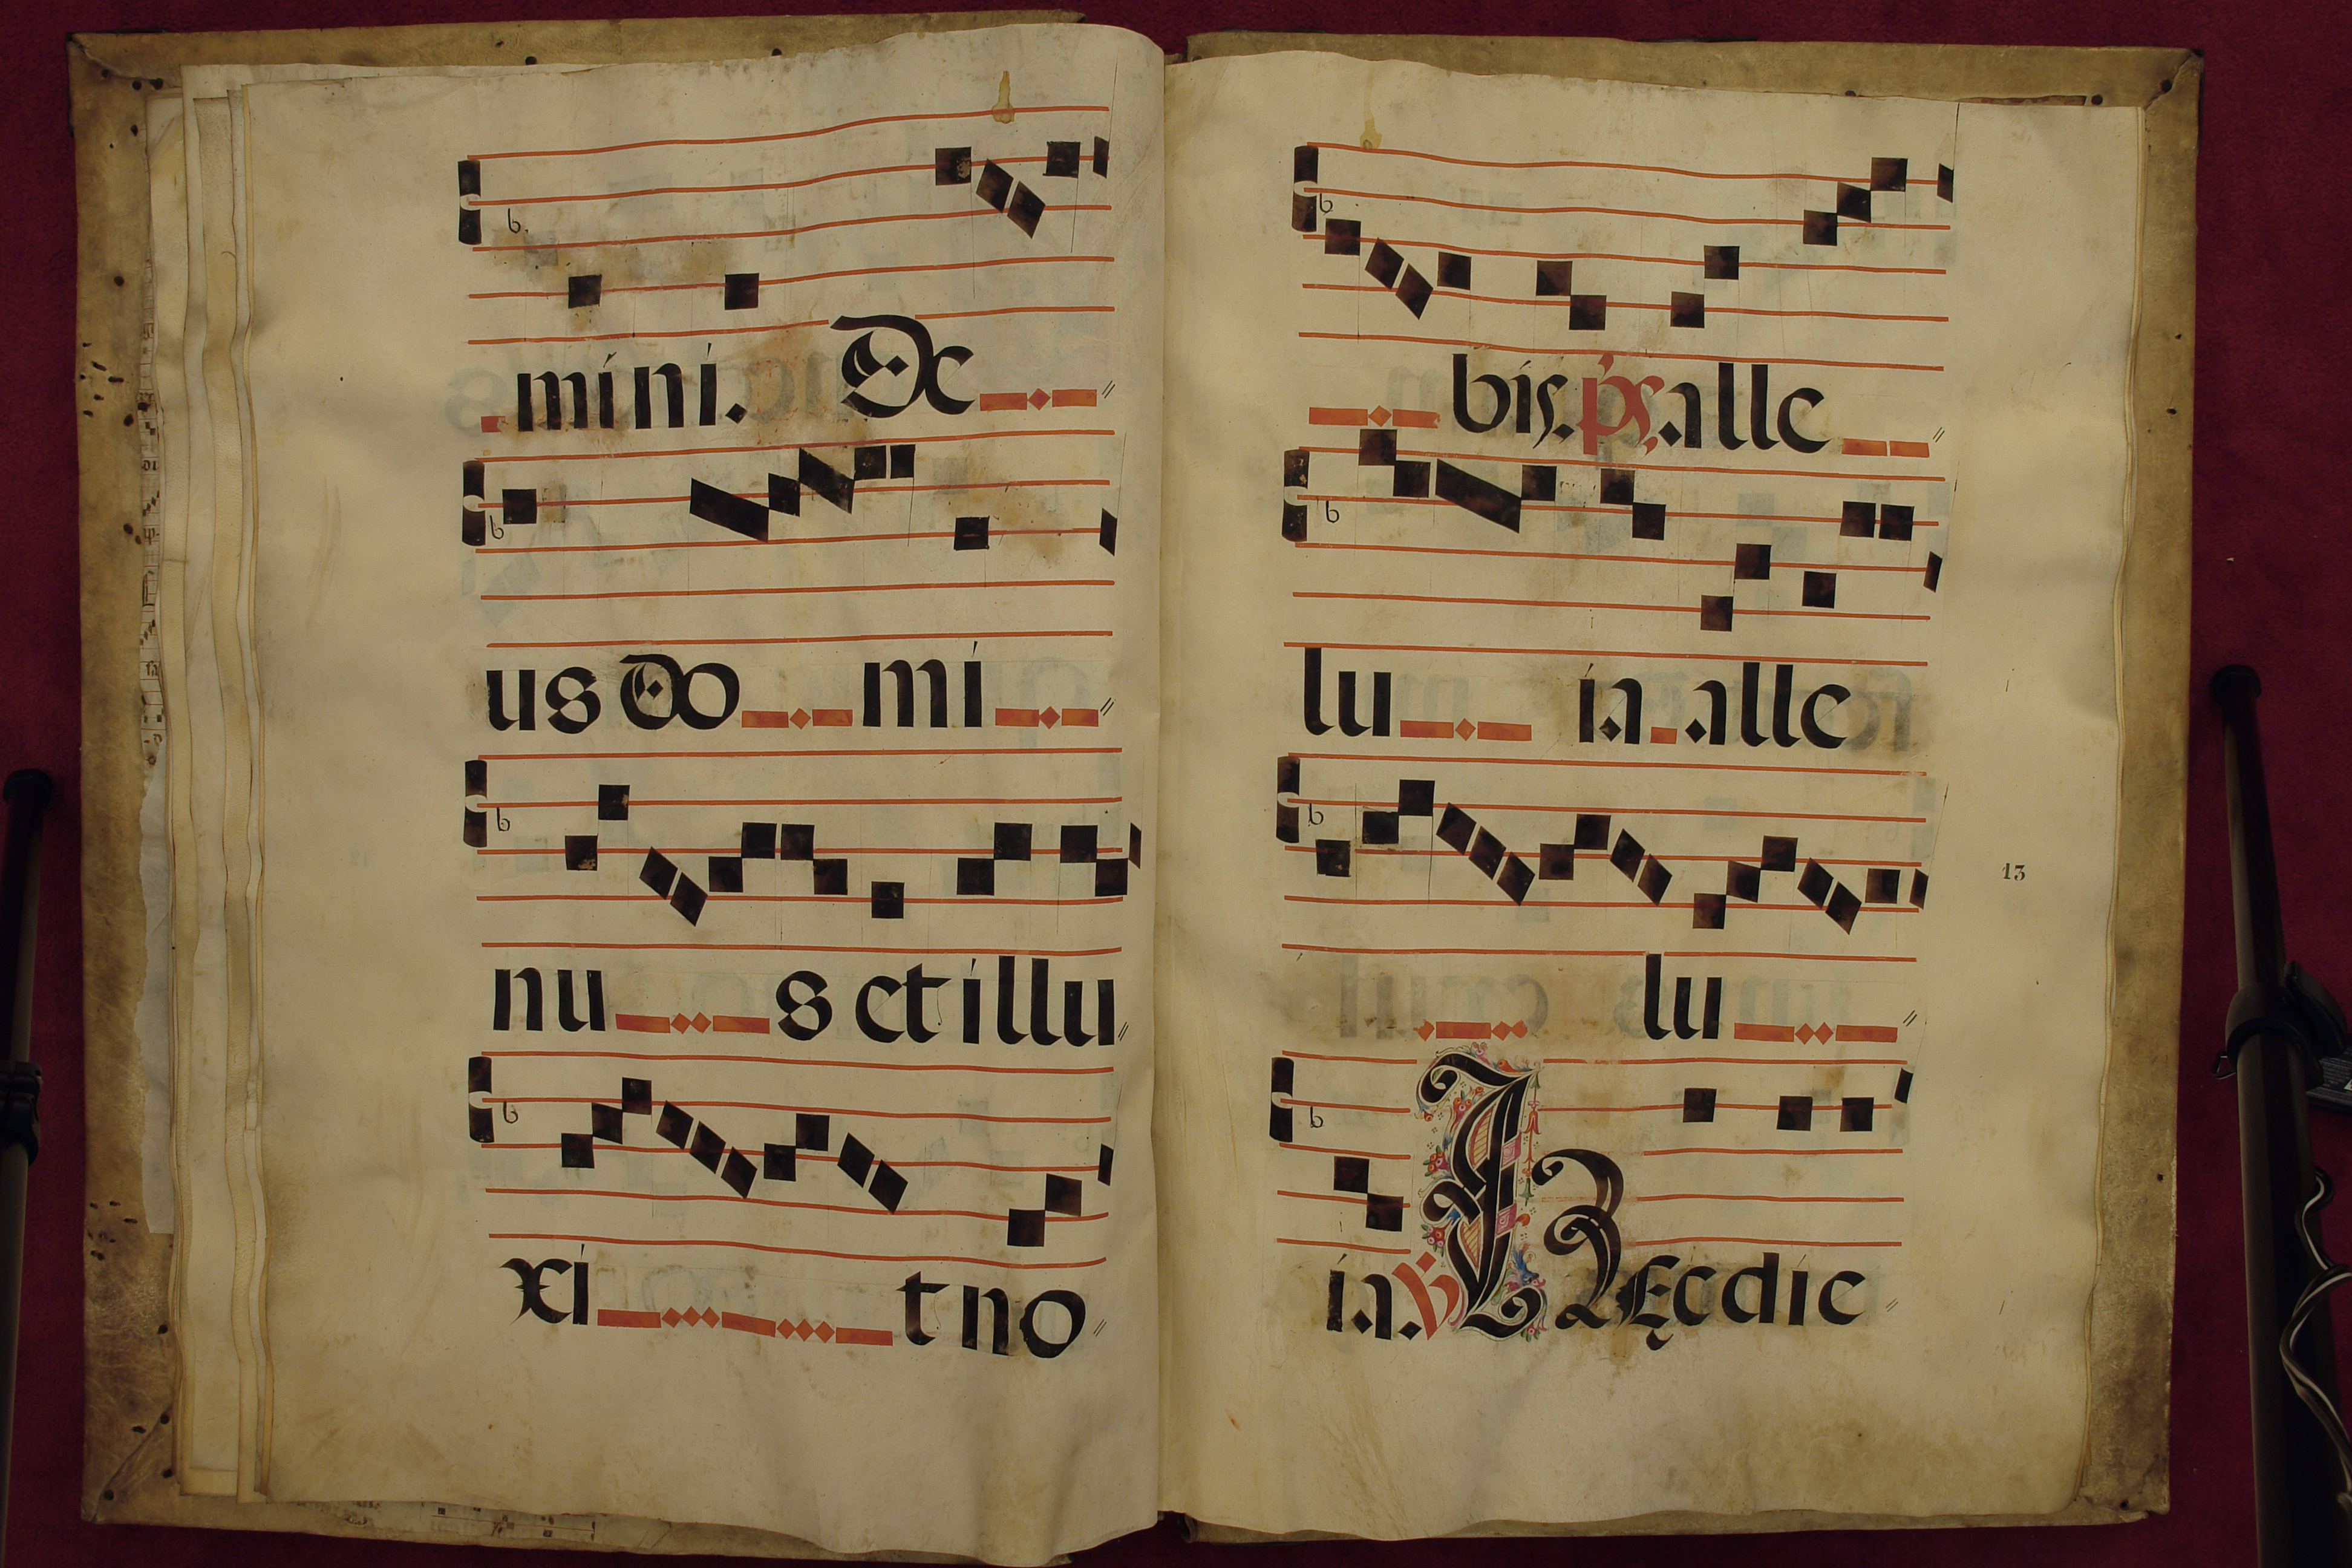 mini. De
us do mi
nu s et illu
xi t no
bis. ps. alle
lu ia alle
lu
ia. ℣ Hæc die
13